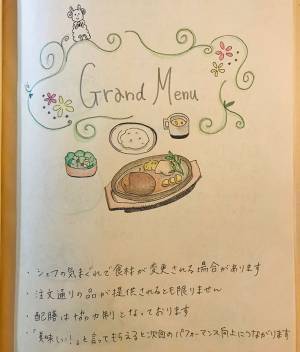 Grand Menu
・シェフの気まぐれで食材が変更される場合があります
・注文通りの品が提供されるとも限りません
・配膳はセルフ制となっております
・「美味しい!」と言ってもらえると次回のパフォーマンス向上につながります